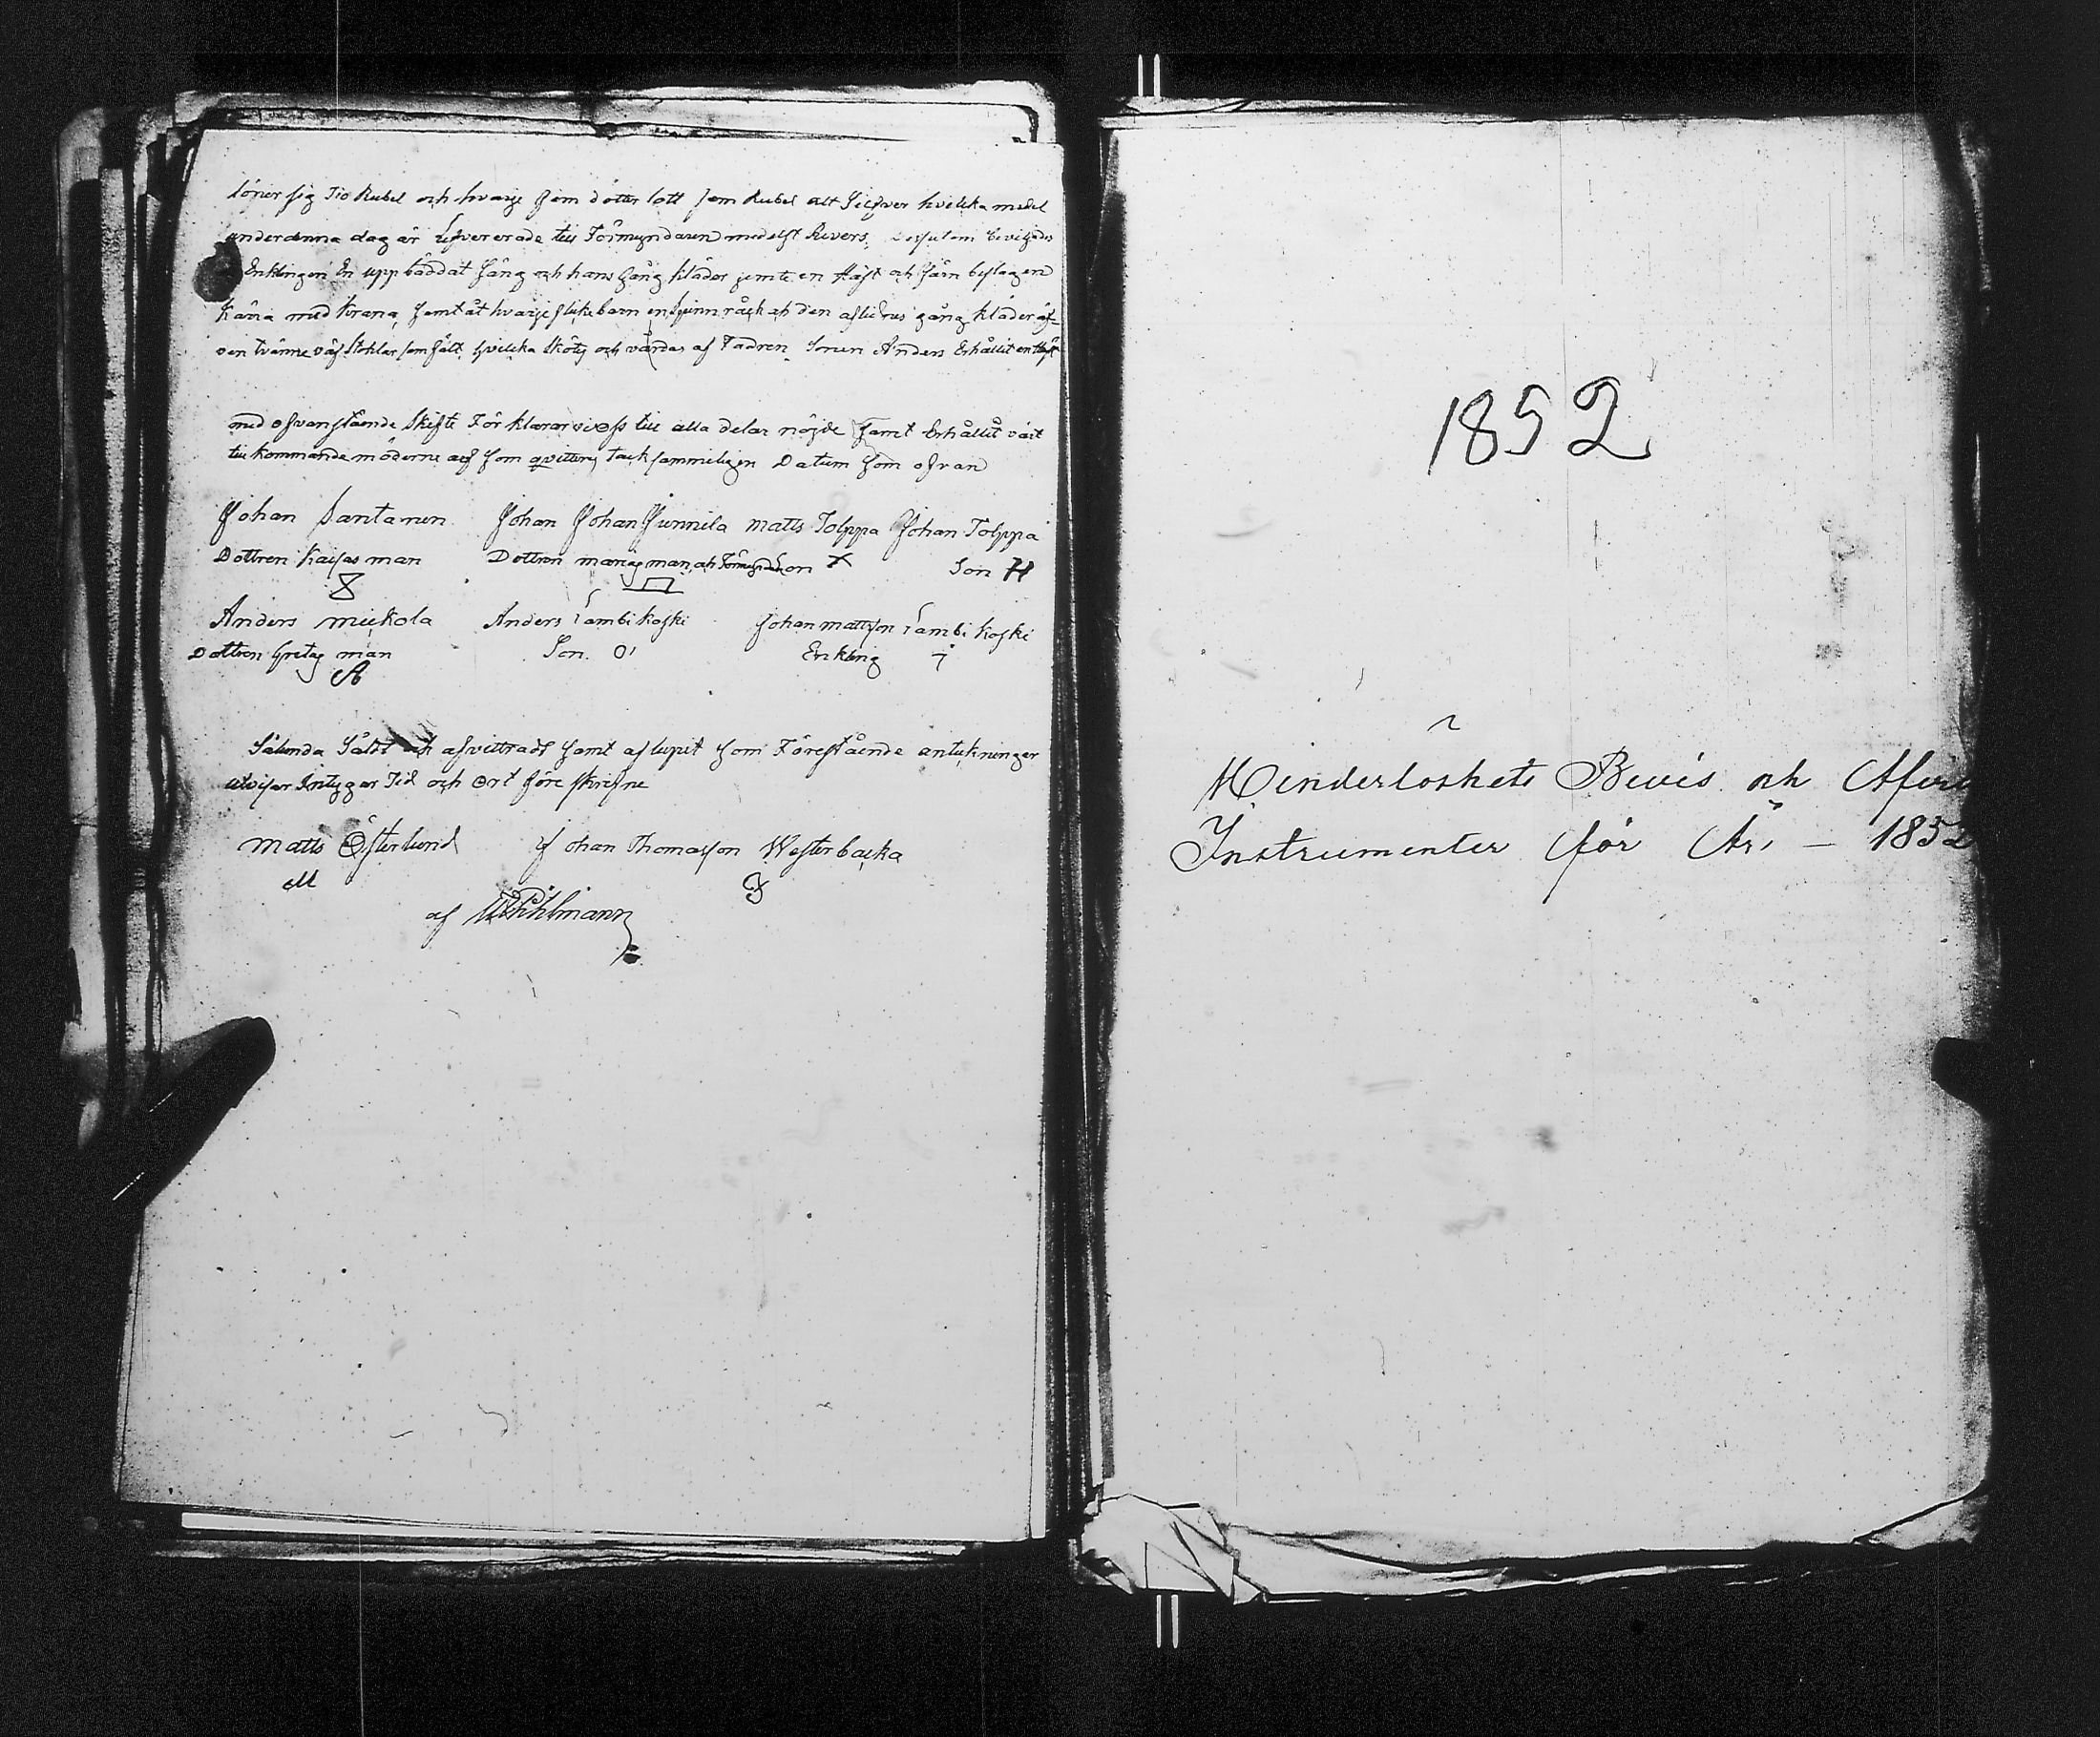 löper sig Tio Rubel och hvarje sin dotter lott fem Rubel alt Silfver hvilka medel
under denna dag är lefvererade till Förmyndaren medelst Revers, dessutom beviljades
Enklingen En upp bäddat säng och hans gång kläder jemte en Häst och Järn beslagen
Kärra med krana, samt åt hvarje flicke barn en spinn råck och den aflidnes gång kläder äf-
ven tvänne våf Stoklar som fält hvilcka Skötes och vårdas af Fadren Sonen Anders Erhållit en Häst
med ofvanstående Skifte Förklarar vi oss till alla delar nöjde samt Erhållit vårt
tillkommande möderne arf som qvitteras tacksammeligen Datum som ofvan
Johan Santanen Johan Johan Junnila Matts Tolppa Johan Tolppa
Dottren Kaisas man Dottren marias man och Förmyndaren X Son H
Anders mickola Anders Lambi koski Johan mattsson Lambi koski
Dottren Gretas man Son Enkling
A
Sålunda Såldt och afvittradt samt aflupit som Förestående anteckningar
utvisar Intygar Tid och Ort föreskrifne
Matts Österlund Johan Thomasson Westerbacka
M
af Pihlmann
1852
Hinderlöshets Bevis och Afvit
Instrumenter för År, — 1852